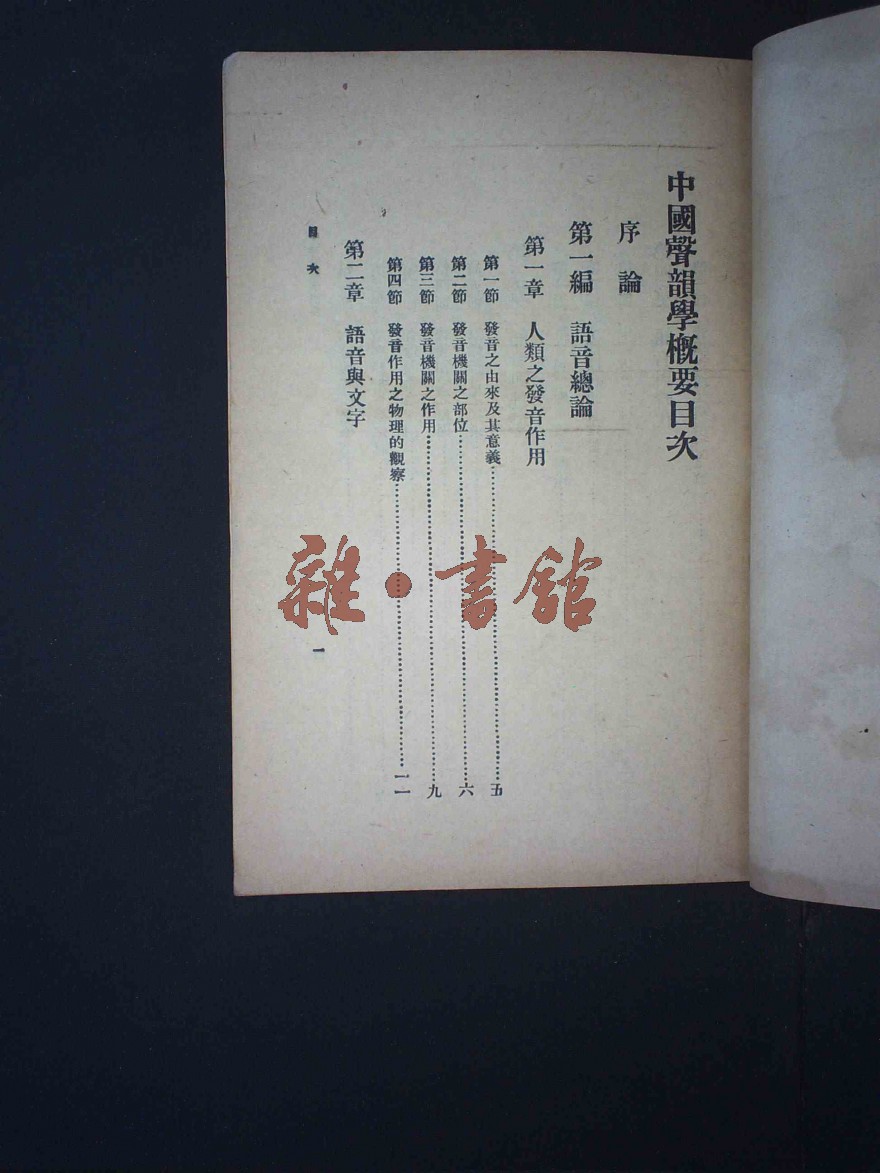 中國聲韻學概要目次
序論
第一編 語音總論
第一章 人類之發音作用
第一節 發音之由來及其意義……五
第二節 發音機關之部位……六
第三節 發音機關之作用……九
第四節 發音作用之物理的觀察……一一
第二章 語音與文字
目次
一
雜·書館